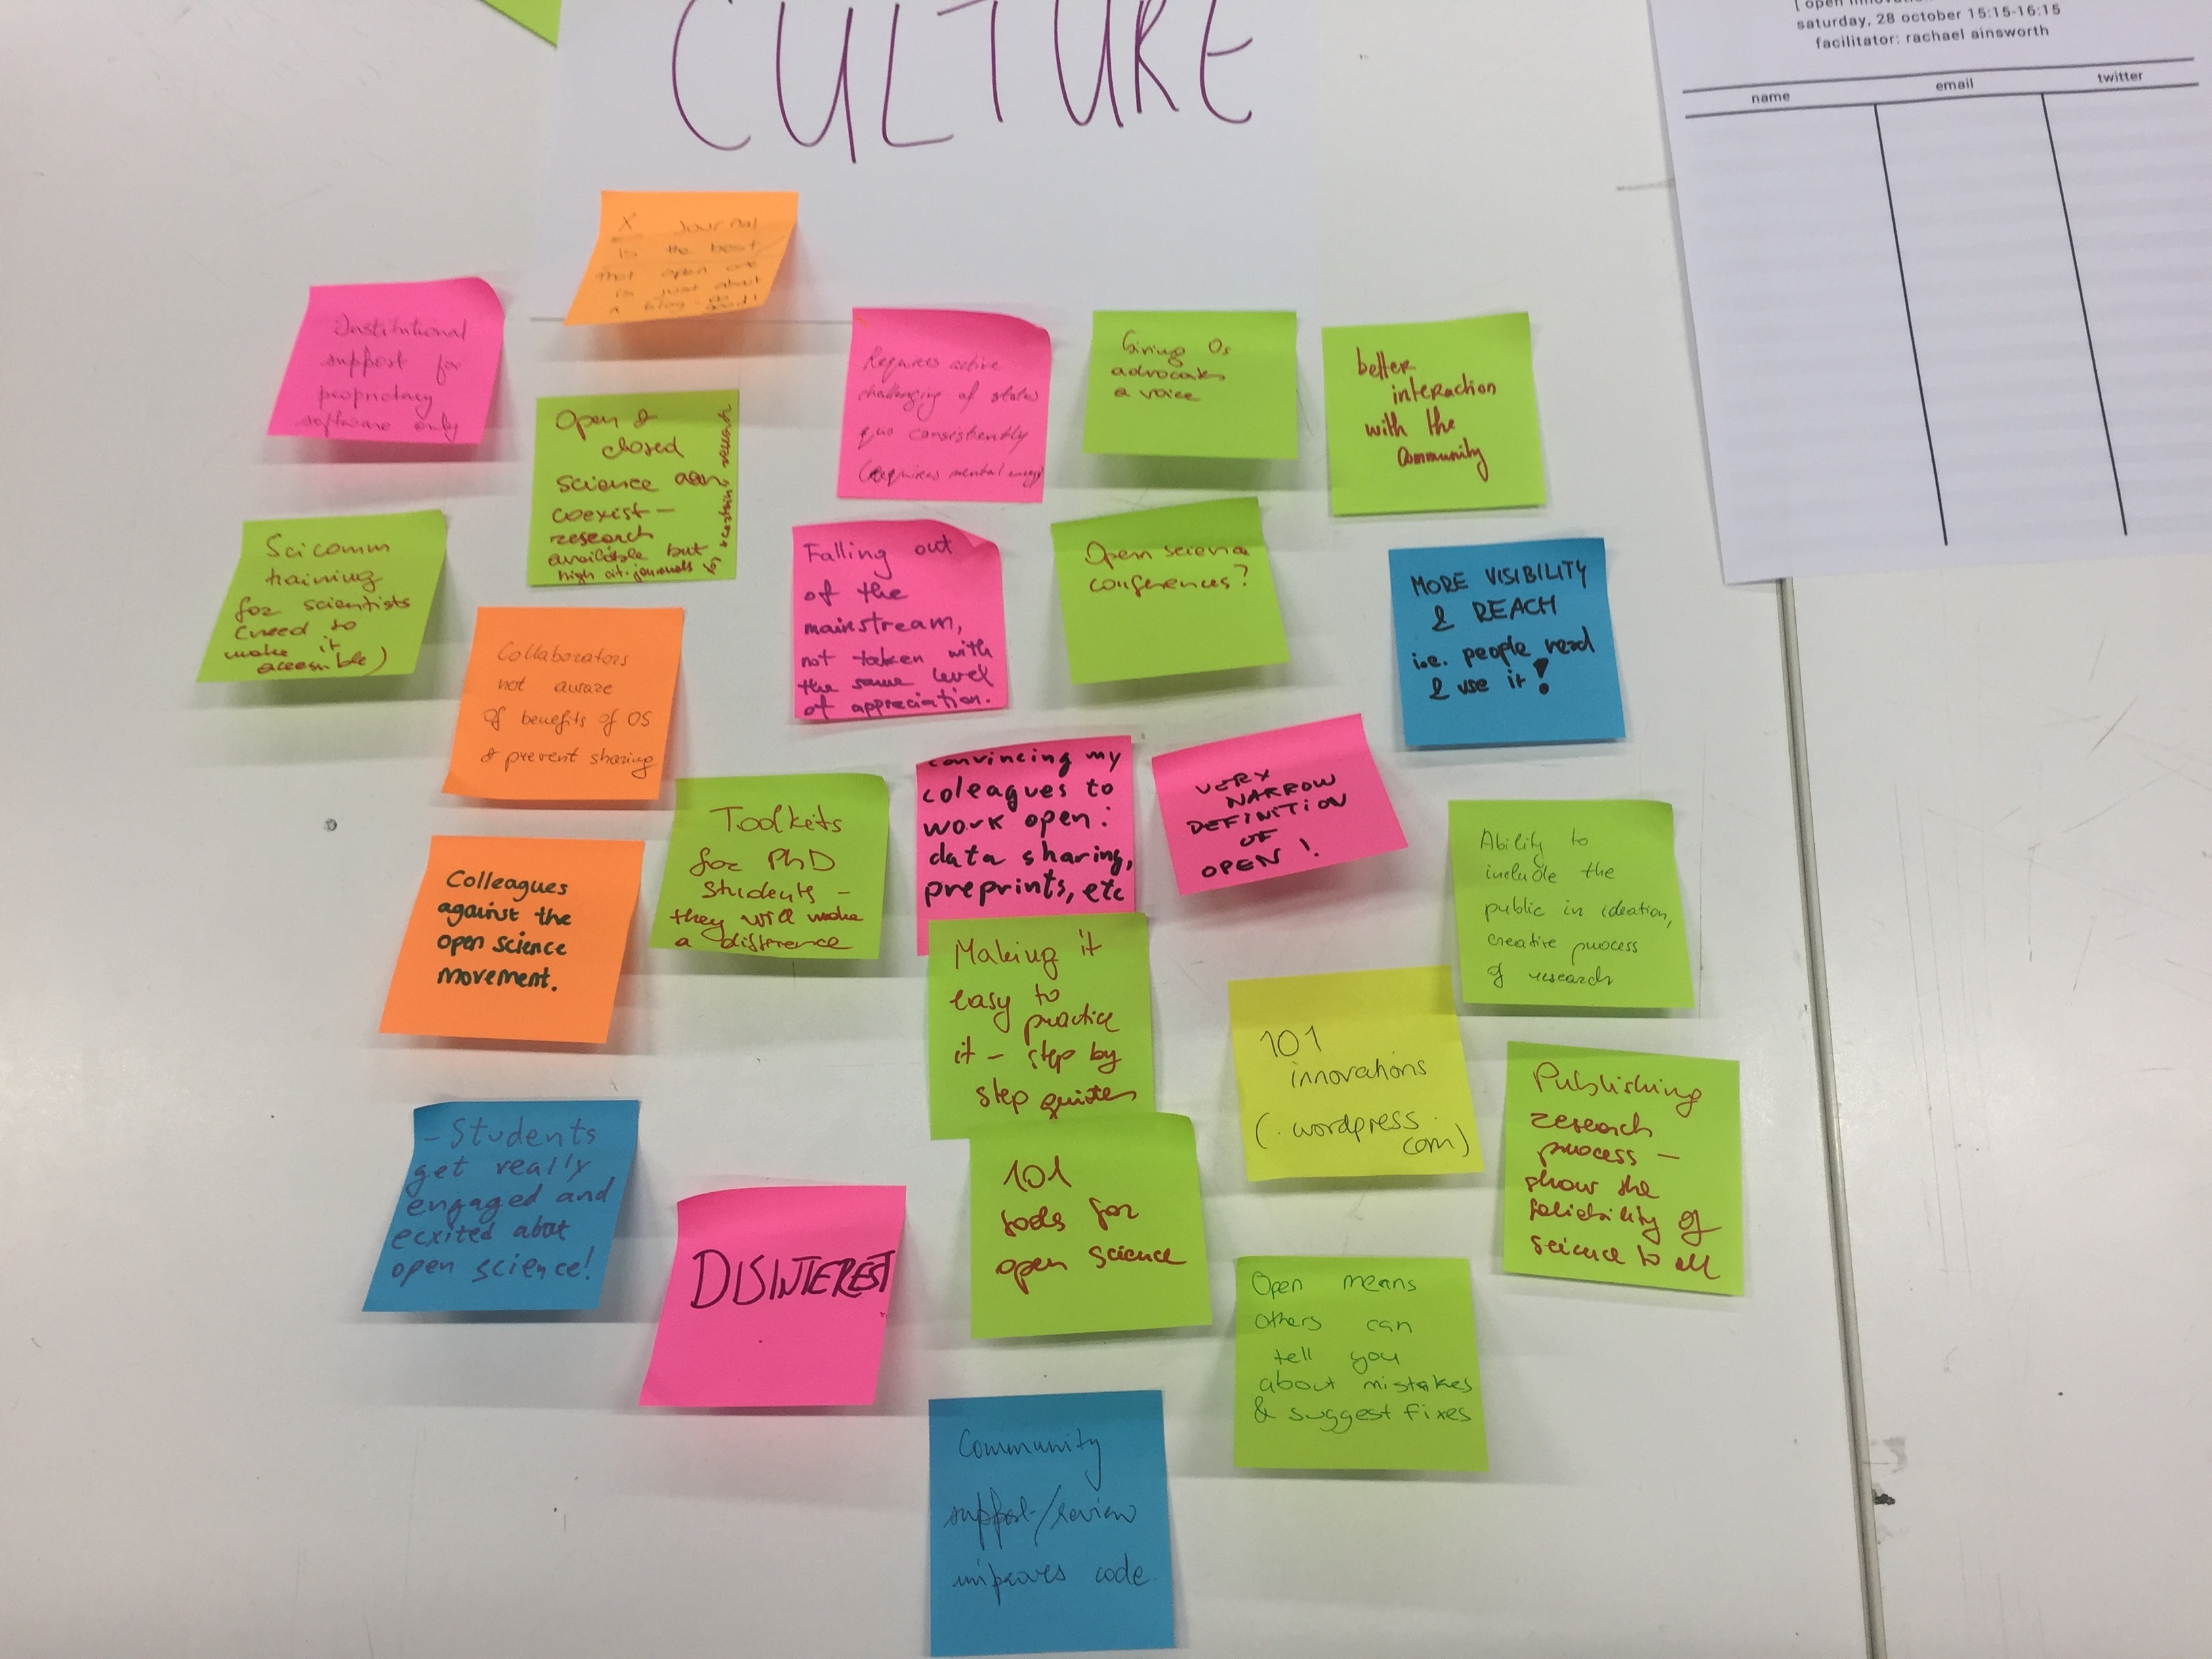 CULTURE
[ open innovation
saturday, 28 october 15:15-16:15
facilitator: rachael ainsworth
name email twitter
X Journal
is the best/
that open one
is just about
a blog - no good!
Institutional
support for
proprietary
software only
Open &
closed
science can
coexist -
research
available but
high cit. journals
for certain
Requires active
challenging of status
quo consistently
(requires mental energy
Giving Os
advocates
a voice
better
interaction
with the
community
Sci comm
training
for scientists
(need to
make it
accessible)
Collaborators
not aware
of benefits of OS
& prevent sharing
Falling out
of the
mainstream,
not taken with
the same level
of appreciation.
Open science
conferences?
MORE VISIBILITY
& REACH
i.e. people read
& use it!
Colleagues
against the
open science
movement.
Toolkits
for PhD
students -
they will make
a difference
convincing my
coleagues to
work open:
data sharing,
preprints, etc
VERY
NARROW
DEFINITION
OF
OPEN!
Ability to
include the
public in ideation,
creative process
of research
Making it
easy to
practice
it - step by
step guides
101
innovations
(.wordpress.
com)
Publishing
research
process -
show the
reliability of
science to all
- Students
get really
engaged and
ecxited about
open science!
DISINTEREST
101
tools for
open science
Open means
others can
tell you
about mistakes
& suggest fixes
Community
support/review
improves code